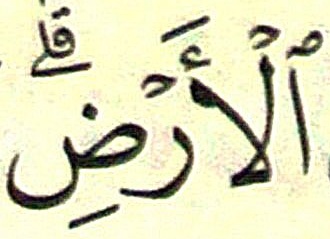 ٱلْأَرْضِ ۗ